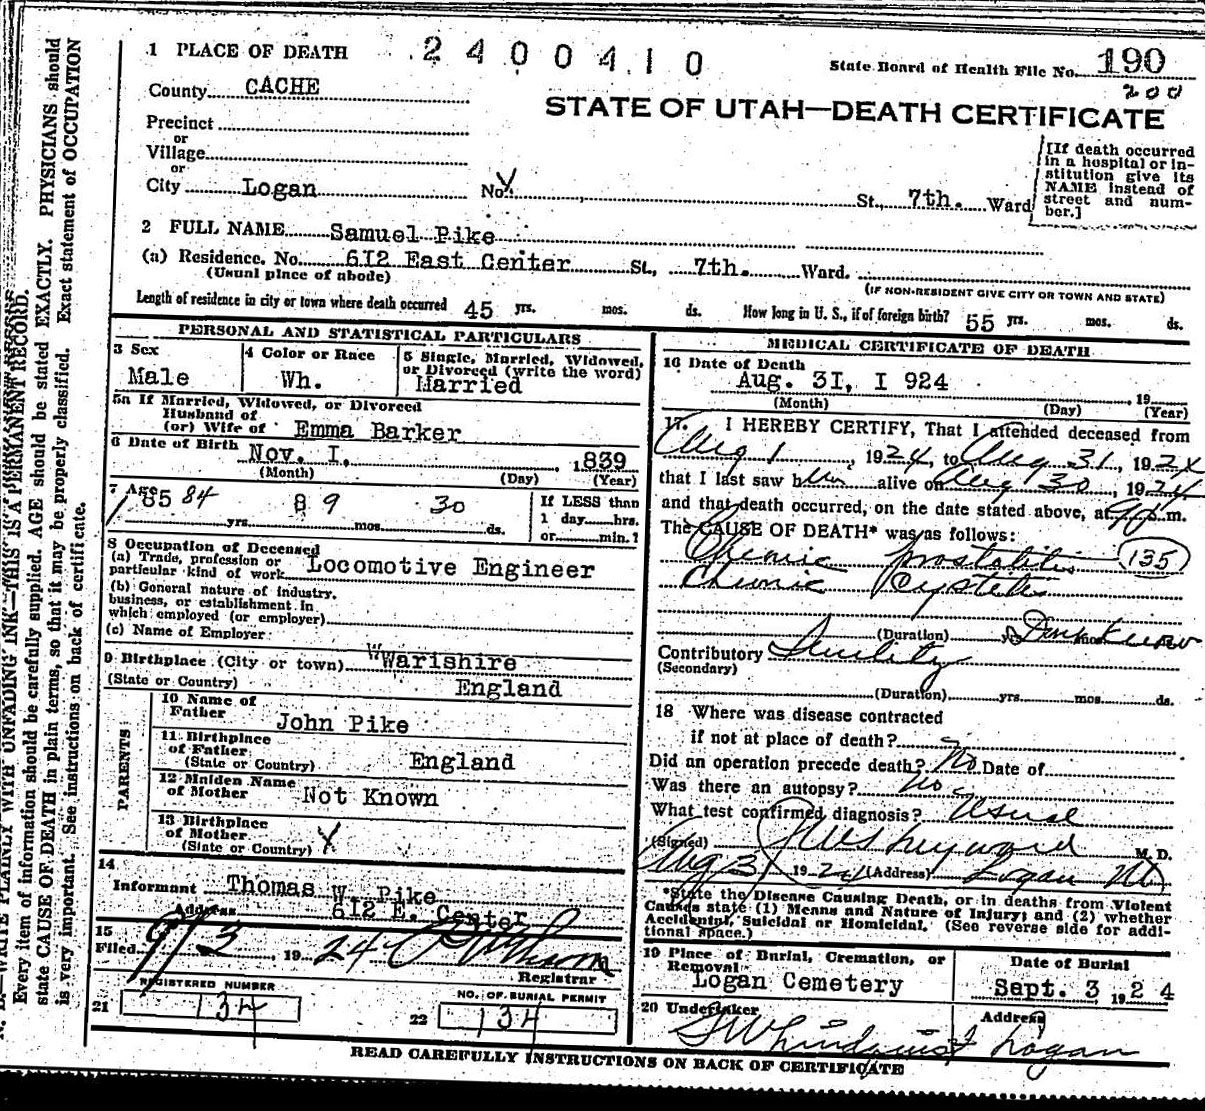 1 PLACE OF DEATH 2400410 State Board of Health File No. 190
200
County CACHE
STATE OF UTAH—DEATH CERTIFICATE
Precinct
or
Village
or
City Logan No. St., 7th. Ward
[If death occurred in a hospital or institution give its NAME instead of street and number.]
2 FULL NAME Samuel Pike
(a) Residence. No. 612 East Center St., 7th. Ward.
(Usual place of abode) (IF NON-RESIDENT GIVE CITY OR TOWN AND STATE)
Length of residence in city or town where death occurred 45 yrs. mos. ds. How long in U. S., if of foreign birth? 55 yrs. mos. ds.
PERSONAL AND STATISTICAL PARTICULARS
3 Sex
Male
4 Color or Race
Wh.
5 Single, Married, Widowed,
or Divorced (write the word)
Married
5a If Married, Widowed, or Divorced
Husband of
(or) Wife of Emma Barker
6 Date of Birth Nov. I, 1839
(Month) (Day) (Year)
7 Age
85 84 8 9 30
yrs. mos. ds.
If LESS than
1 day hrs.
or min.?
8 Occupation of Deceased
(a) Trade, profession or
particular kind of work Locomotive Engineer
(b) General nature of industry,
business, or establishment in
which employed (or employer)
(c) Name of Employer
9 Birthplace (City or town) Warishire
(State or Country) England
PARENTS
10 Name of
Father John Pike
11 Birthplace
of Father
(State or Country) England
12 Maiden Name
of Mother Not Known
13 Birthplace
of Mother
(State or Country)
14
Informant Thomas W. Pike
Address 612 E. Center
15
Filed 9/3, 1924
Registrar
REGISTERED NUMBER
21 134
NO. OF BURIAL PERMIT
22 134
MEDICAL CERTIFICATE OF DEATH
16 Date of Death
Aug. 3I, I 924, 19
(Month) (Day) (Year)
17. I HEREBY CERTIFY, That I attended deceased from
Aug 1, 1924, to Aug 31, 1924
that I last saw him alive on Aug 30, 1924
and that death occurred, on the date stated above, at m.
The CAUSE OF DEATH* was as follows:
Chronic Prostatitis 135
Chronic Cystitis
(Duration) Dont know
Contributory Senility
(Secondary)
(Duration) yrs. mos. ds.
18 Where was disease contracted
if not at place of death?
Did an operation precede death? No Date of
Was there an autopsy? No
What test confirmed diagnosis? Usual
(Signed) M. D.
Aug 31 1924 (Address) Logan Ut
*State the Disease Causing Death, or in deaths from Violent
Causes state (1) Means and Nature of Injury; and (2) whether
Accidental, Suicidal or Homicidal. (See reverse side for addi-
tional space.)
19 Place of Burial, Cremation, or
Removal
Logan Cemetery
Date of Burial
Sept. 3, 1924
20 Undertaker Address
Lindquist Logan
READ CAREFULLY INSTRUCTIONS ON BACK OF CERTIFICATE
WRITE PLAINLY WITH UNFADING INK—THIS IS A PERMANENT RECORD.
Every item of information should be carefully supplied. AGE should be stated EXACTLY. PHYSICIANS should
state CAUSE OF DEATH in plain terms, so that it may be properly classified. Exact statement of OCCUPATION
is very important. See instructions on back of certificate.